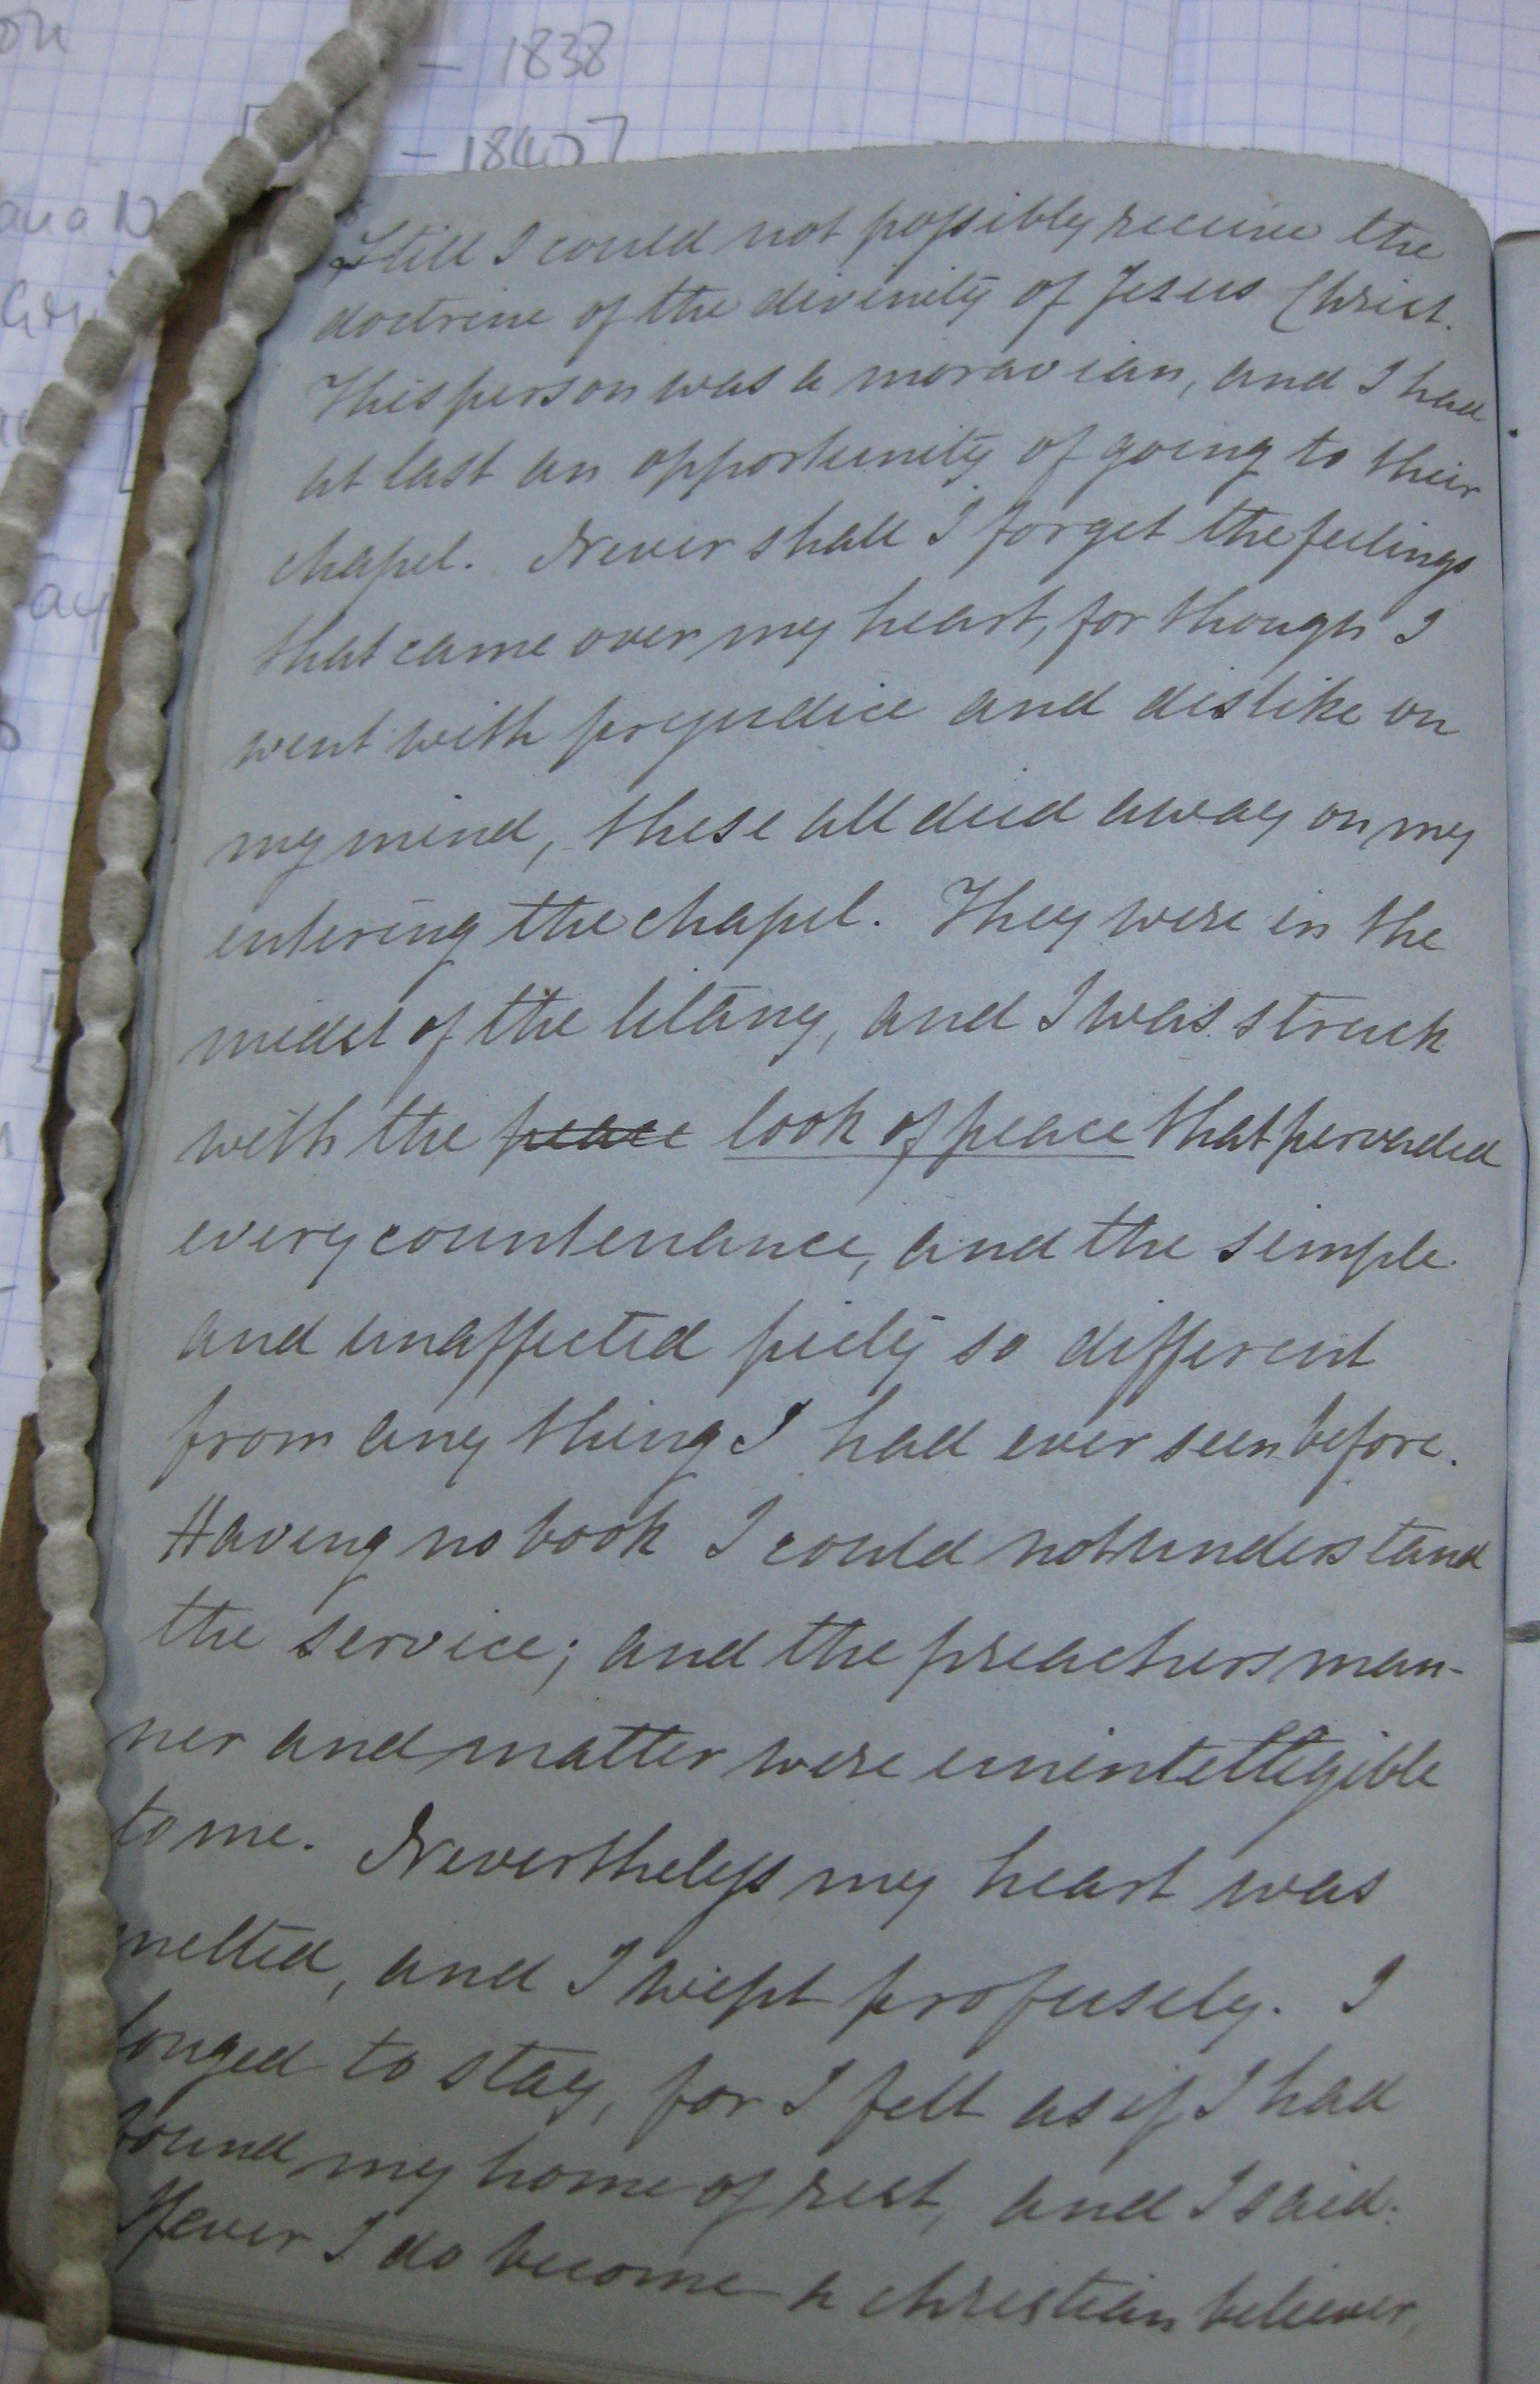 – 1838
Still I could not possibly receive the
doctrine of the divinity of Jesus Christ.
This person was a moravian, and I had
at last an opportunity of going to their
chapel. Never shall I forget the feelings
that came over my heart, for though I
went with prejudice and dislike on
my mind, these all died away on my
entering the chapel. They were in the
midst of the litany, and I was struck
with the peace look of peace that pervaded
every countenance, and the simple
and unaffected piety so different
from any thing I had ever seen before.
Having no book I could not understand
the service; and the preachers man-
ner and matter were unintelligible
to me. Nevertheless my heart was
melted, and I wept profusely. I
longed to stay, for I felt as if I had
found my home of rest, and I said:
If ever I do become a christian believer,